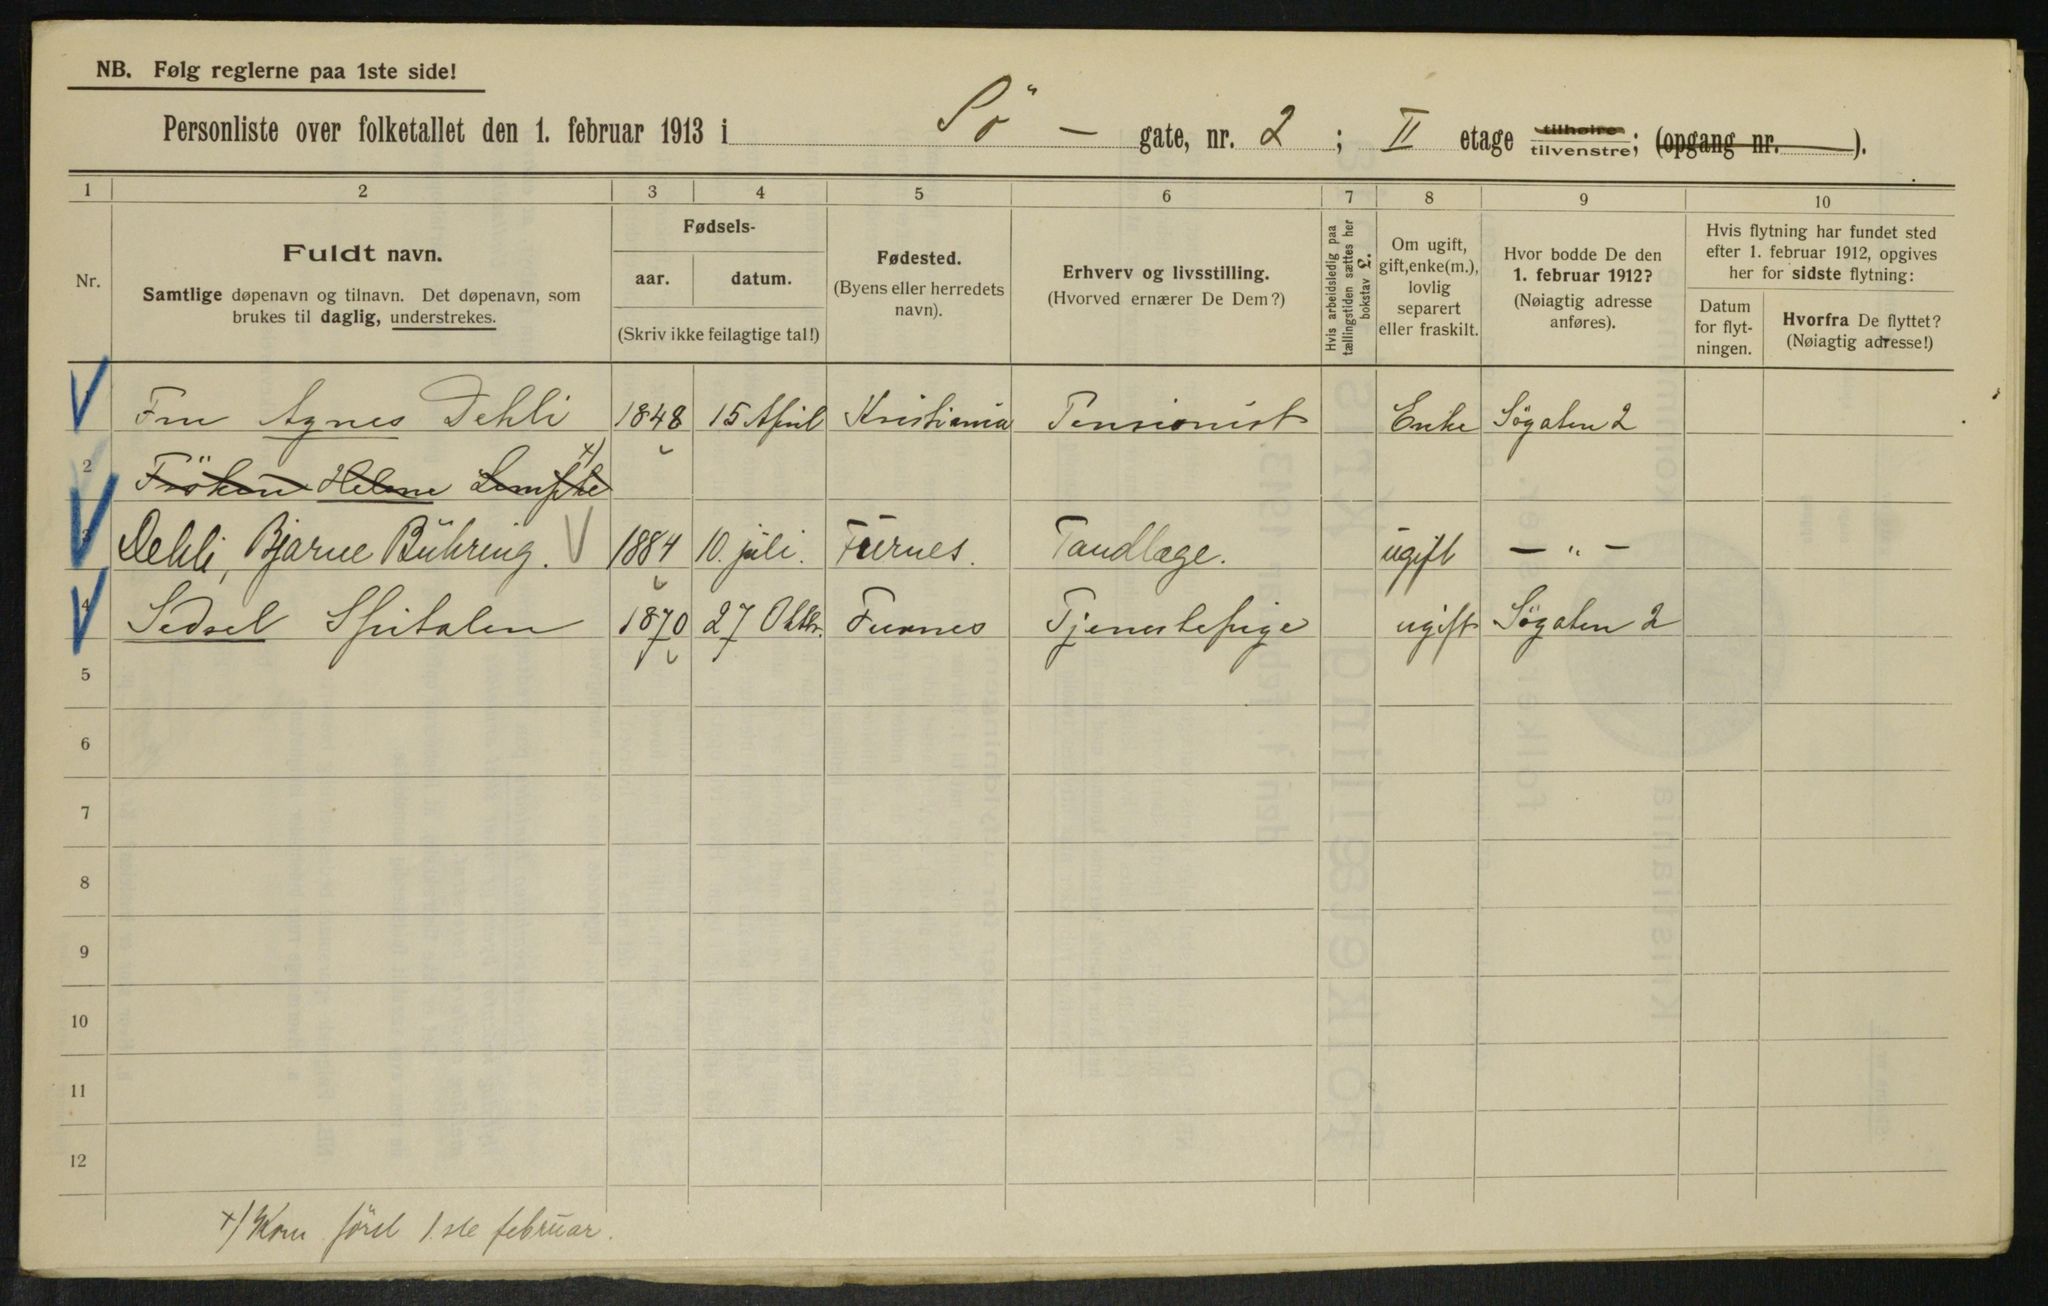 NB. Følg reglerne paa 1ste side!
Personliste over folketallet den 1. februar 1913 i Sö - gate, nr. 2; II etage tilhøire tilvenstre; (opgang nr. ).
1 2 3 4 5 6 7 8 9 10
Nr.
Fuldt navn.
Samtlige døpenavn og tilnavn. Det døpenavn, som
brukes til daglig, understrekes.
Fødsels-
aar. datum.
(Skriv ikke feilagtige tal!)
Fødested.
(Byens eller herredets
navn).
Erhverv og livsstilling.
(Hvorved ernærer De Dem?)
Hvis arbeidsledig paa
tællingstiden sættes her
bokstav £.
Om ugift,
gift, enke(m.),
lovlig
separert
eller fraskilt.
Hvor bodde De den
1. februar 1912?
(Nøiagtig adresse
anføres).
Hvis flytning har fundet sted
efter 1. februar 1912, opgives
her for sidste flytning:
Datum
for flyt-
ningen.
Hvorfra De flyttet?
(Nøiagtig adresse!)
Fru Agnes Dehli 1848 15 April Kristiania Pensionist Enke Søgaten 2
2 Fröken Helene x)
3 Dehli, Bjarne Bühring. V 1884 10. juli. Furnes. Tandlæge. ugift — " —
4 Sedsel Spitalen 1870 27 Oktbr. Furnes Tjenestepige ugift Søgaten 2
5
6
7
8
9
10
11
12
x) Kom först 1.ste februar.